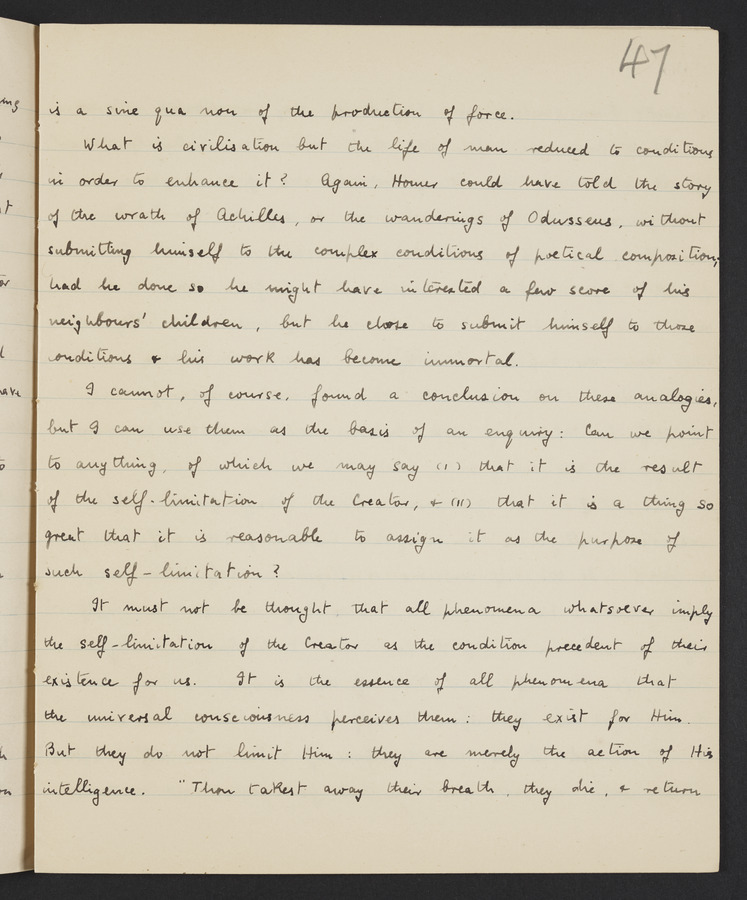 47
is a sine qua non of the production of force.
What is civilisation but the life of man reduced to conditions
in order to enhance it? Again, Homer could have told the story
of the wrath of Achilles, or the wanderings of Odusseus, without
submitting himself to the complex conditions of poetical composition;
had he done so he might have interested a few score of his
neighbours' children, but he chose to submit himself to those
conditions & his work has become immortal.
I cannot, of course, found a conclusion on these analogies,
but I can use them as the basis of an enquiry: Can we point
to anything, of which we may say (I) that it is the result
of the self-limitation of the Creator, & (II) that it is a thing so
great that it is reasonable to assign it as the purpose of
such self-limitation?
It must not be thought that all phenomena whatsoever imply
the self-limitation of the Creator as the condition precedent of their
existence for us. It is the essence of all phenomena that
the universal consciousness perceives them: they exist for Him.
But they do not limit Him: they are merely the action of His
intelligence. "Thou takest away their breath, they die, & return